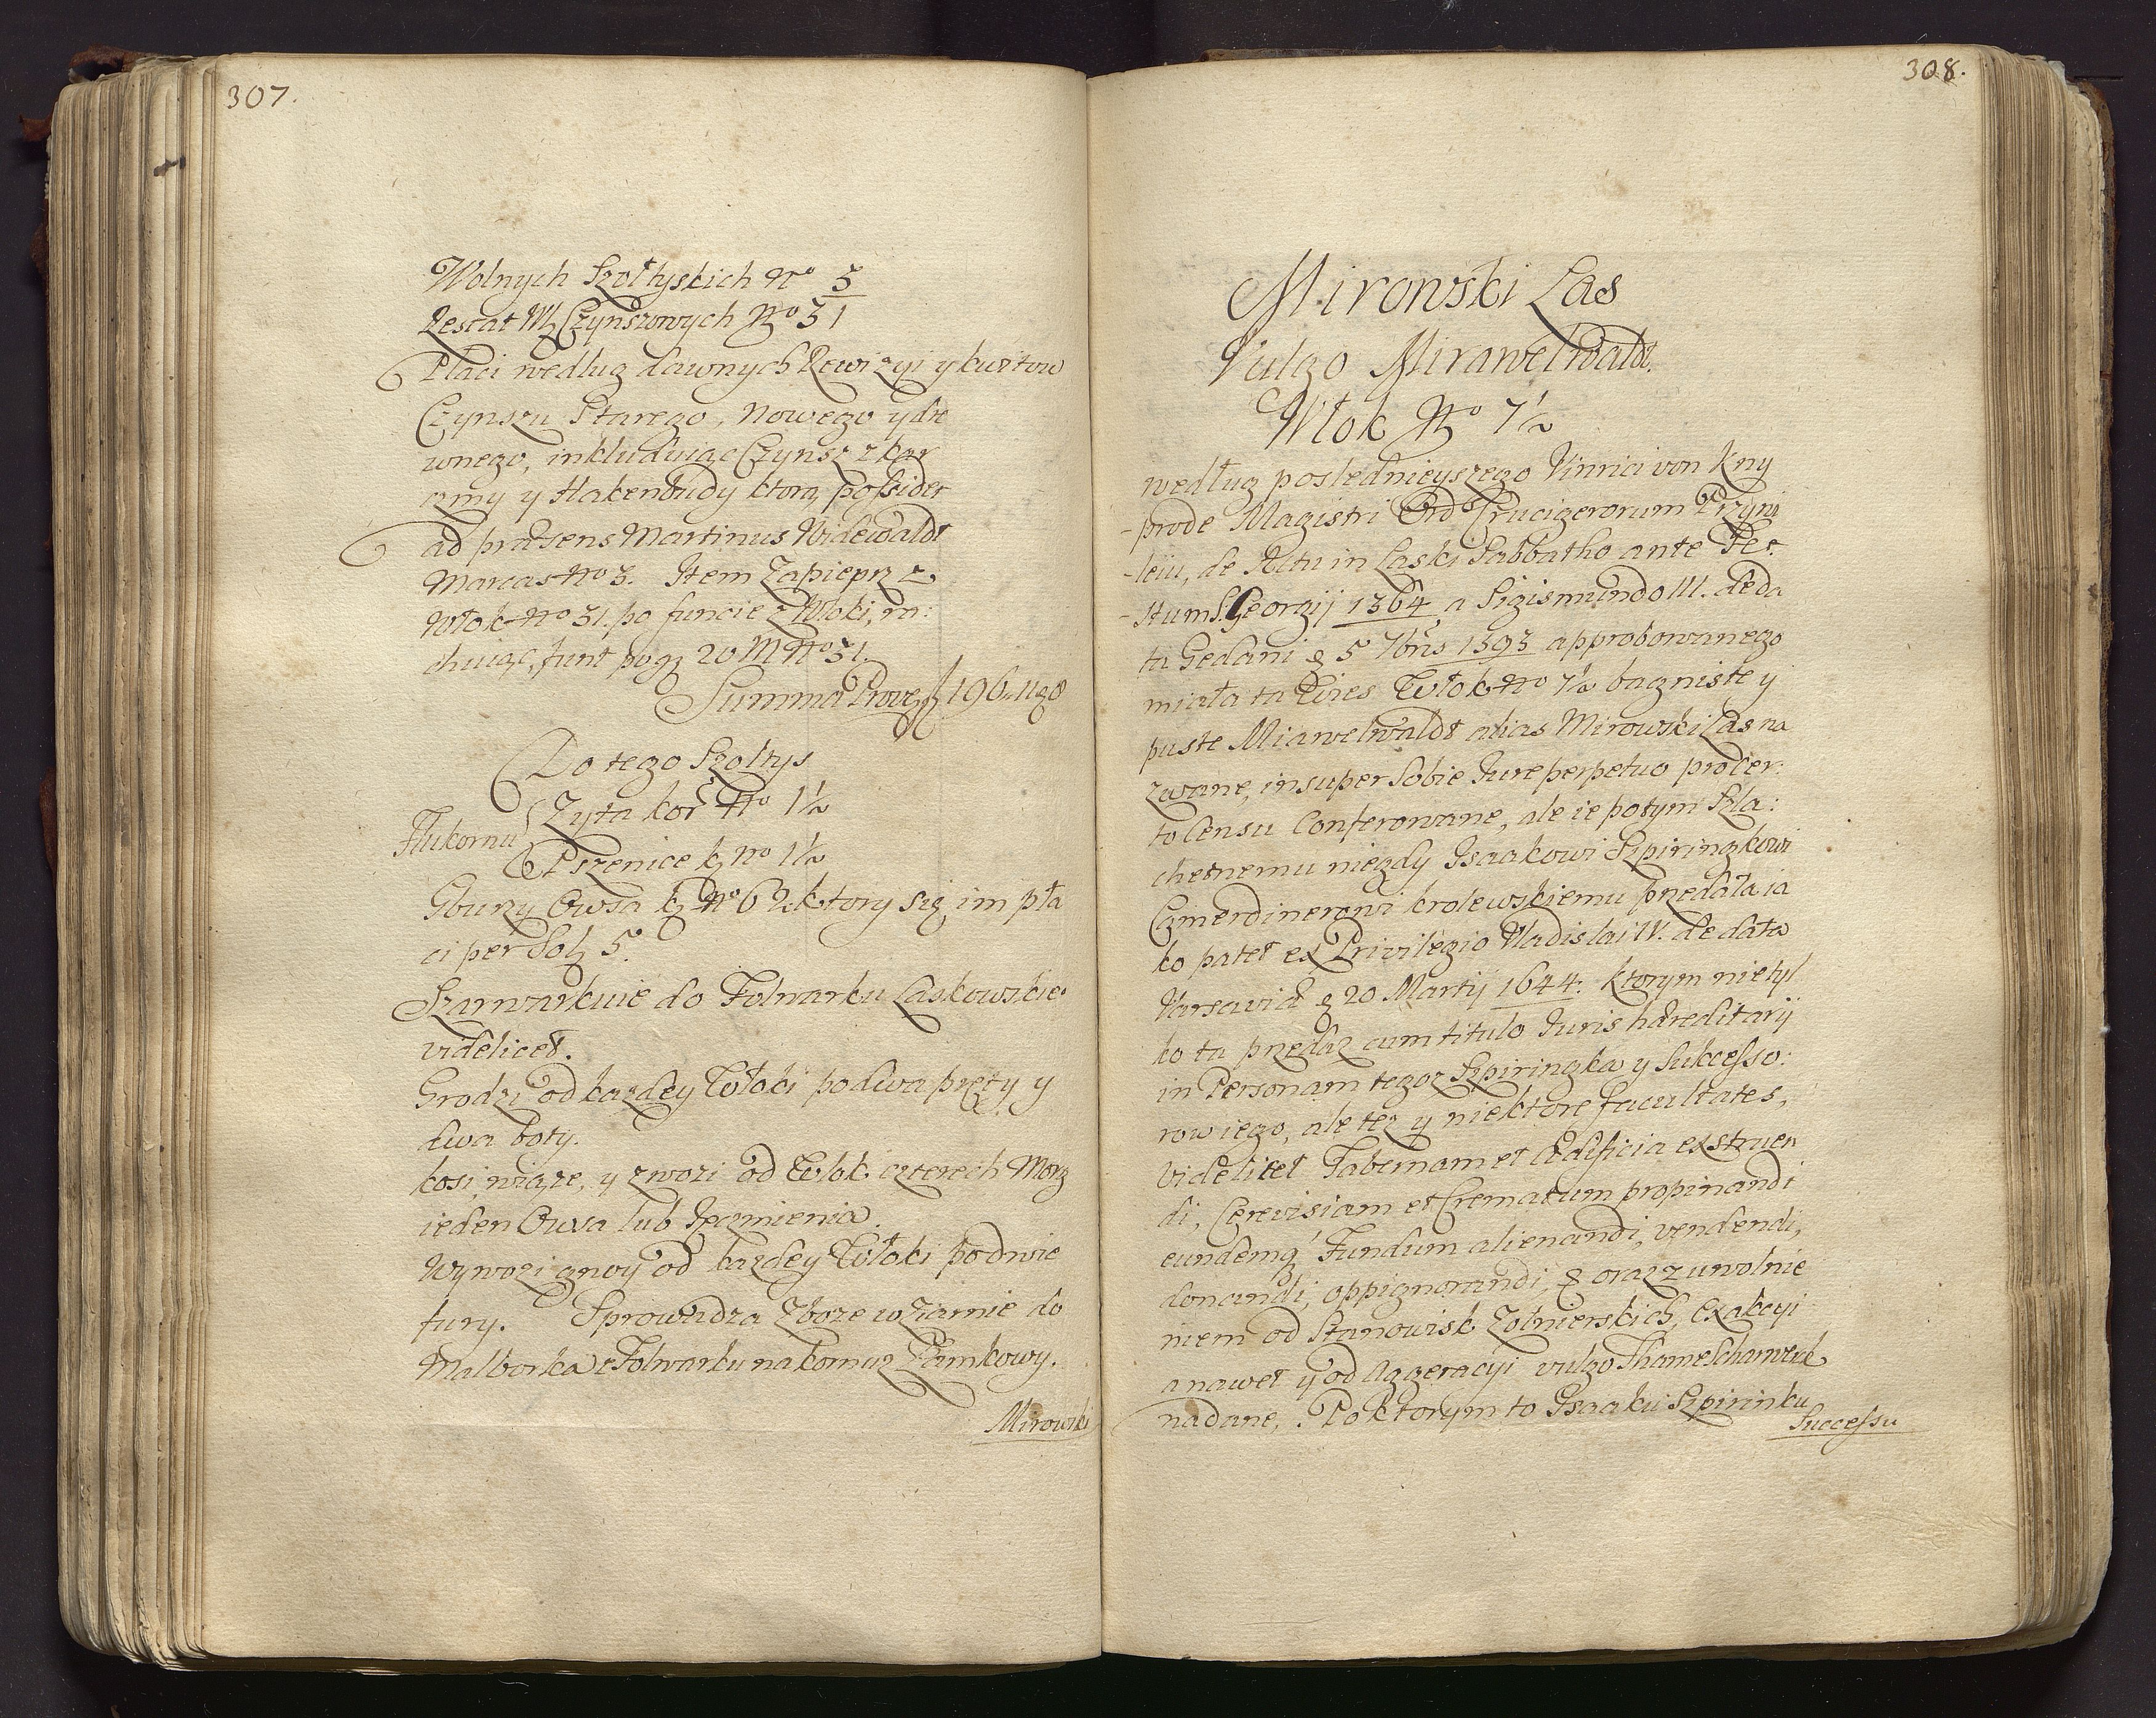 307.
Wolnych Szołtyskich No 3
Restat Wł Czynszowych No 31
Płaci według dawnych Rewizyi y kwitow
Czynszu Starego, Nowego y dre
wnego, inkluduiąc Czynsz z kar
czmy y Hakenbudy ktorą possidet
ad præsens Martinus Widewaldt
Marcas No 3. Item Zapieprz z
Włok No 31. po funcie z Włoki, ra:
chuiąc funt po gz 20 M No 31.
Summa Prove f 196 " 11 g 8
Do tego Szołtys
Flukornu Zyta kor No 1½
Pszenice k No 1½
Gburzy Owsa k No 62. ktory się im pła
ci per Sol 5.
Szarwarkuie do Folwarku Laskowskie:
videlicet.
Grodzi od kazdey Włoki po dwa pręty y
dwa boty.
kosi, wiąze, y zwozi od Włok czterech Morg
ieden Owsa lub Jęczmienia.
Wywozi gnoÿ od kazdey Włoki po dwie
fury. Sprowadza Zboze w Ziarnie do
Malborka z Folwarku na komurz Zamkowy.
Mirowski
308.
Mirowski Las
Vulgo Mirawelwaldt.
Włok No 7½
według poslednieyszego Vinrici von Kny
-prode Magistri Ord: Crucigerorum Przywi
-leiu, de Actu in Laski Sabbatho ante Fes
-tum S. Georgij 1364 a Sigismundo III. de da
ta Gedani 5 7bris 1593 approbowanego
miała ta Wies Włok No 7½ bagniste y
puste Miarwelwaldt alias Mirowski Las na
zwane, insuper sobie Jure perpetuo pro cer:
to Censu Conferowane, ale ie potym Szla:
chetnemu niegdy Isaakowi Szpiringkowi
Czmerdinerowi krolewskiemu przedała ia
ko patet ex Privilegio Vladislai IV. de data
Varsaviæ 20 Martij 1644. ktorym nie tyl
ko ta przedaz cum titulo Juris hæreditarÿ
in Personam tegoz Szpiringka y Sukcesso:
row iego, ale tez y niektore facultates,
videlicet Tabernam et Ædificia exstruen
di, Cerevisiam et Crematum propinandi
eundemq Fundum alienandi, vendendi,
donandi, oppignorandi, & oraz z uwolnie
niem od Stanowisk Zołnierskich, Exakcyi
a nawet y od Aggeracyi vulgo Thame Scharwerk
nadane, Po ktorym to Isaaku Szpirinku
Successu